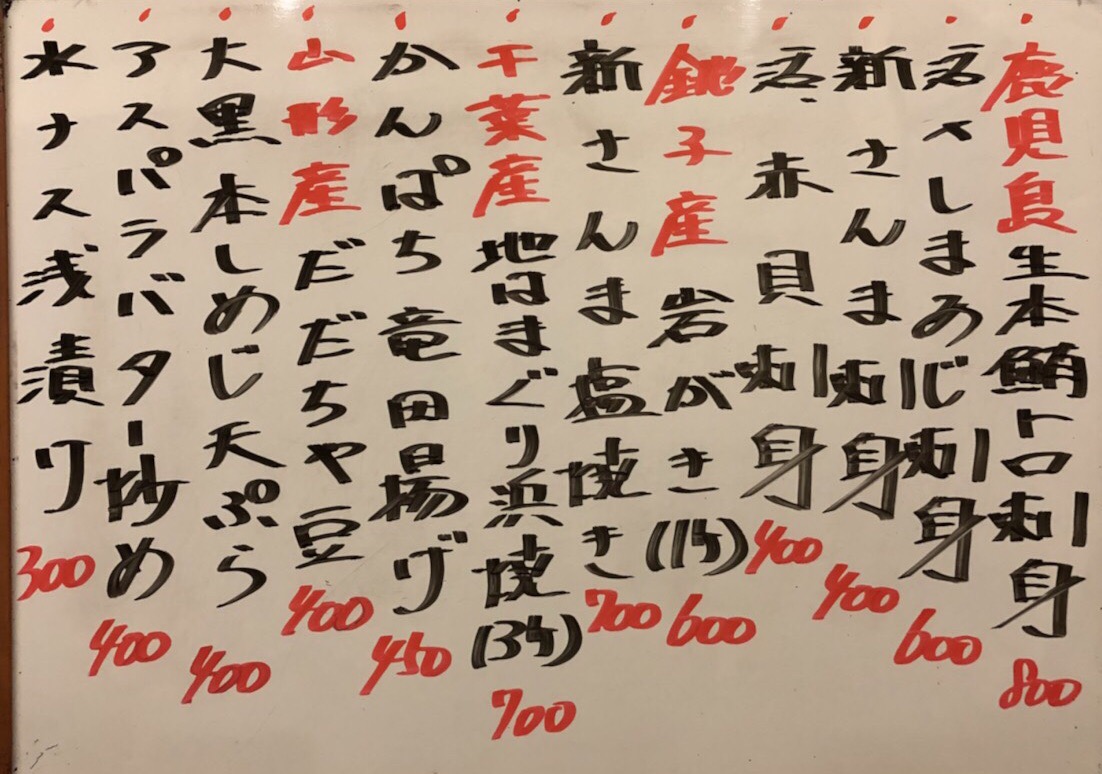 鹿児島生本鮪トロ刺身 800
活〆しまあじ刺身 600
新さんま刺身 400
活赤貝刺身 400
銚子産岩がき(1ケ) 600
新さんま塩焼き 700
千葉産地はまぐり浜焼(3ケ) 700
かんぱち竜田揚げ 450
山形産だだちゃ豆 400
大黒本しめじ天ぷら 400
アスパラバター炒め 400
水ナス浅漬り 300